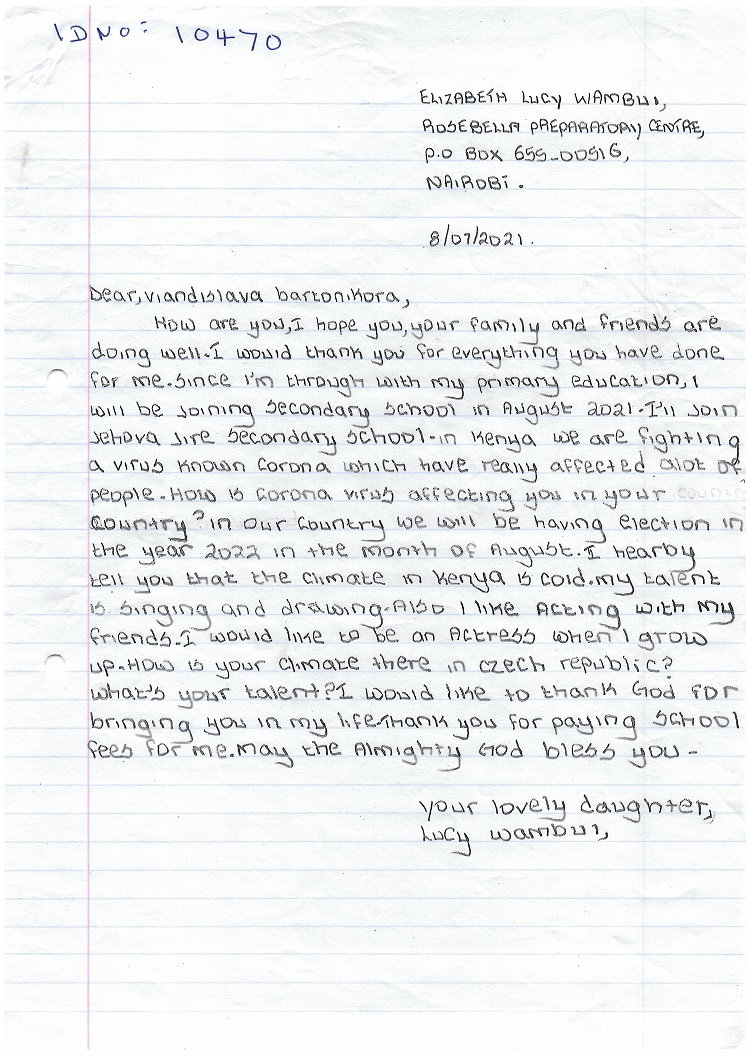 IDNO: 10470
ELIZABETH LUCY WAMBUI,
ROSEBELLA PREPARATORY CENTRE,
P.O BOX 655-00516,
NAIROBI.
8/07/2021.
Dear, viandislava bartonikora,
How are you, I hope you, your family and friends are
doing well. I would thank you for everything you have done
for me. Since I'm through with my primary education, I
will be joining secondary school in August 2021. I'll join
Jehova Jire secondary school. in Kenya we are fighting
a virus known Corona which have really affected alot of
people. How is Corona virus affecting you in your country
country? in our country we will be having election in
the year 2022 in the month of August. I hearby
tell you that the climate in Kenya is cold. my talent
is singing and drawing. Also I like Acting with my
friends. I would like to be an Actress when I grow
up. How is your climate there in czech republic?
what's your talent? I would like to thank God for
bringing you in my life. thank you for paying school
fees for me. may the Almighty God bless you -
your lovely daughter,
Lucy wambui,